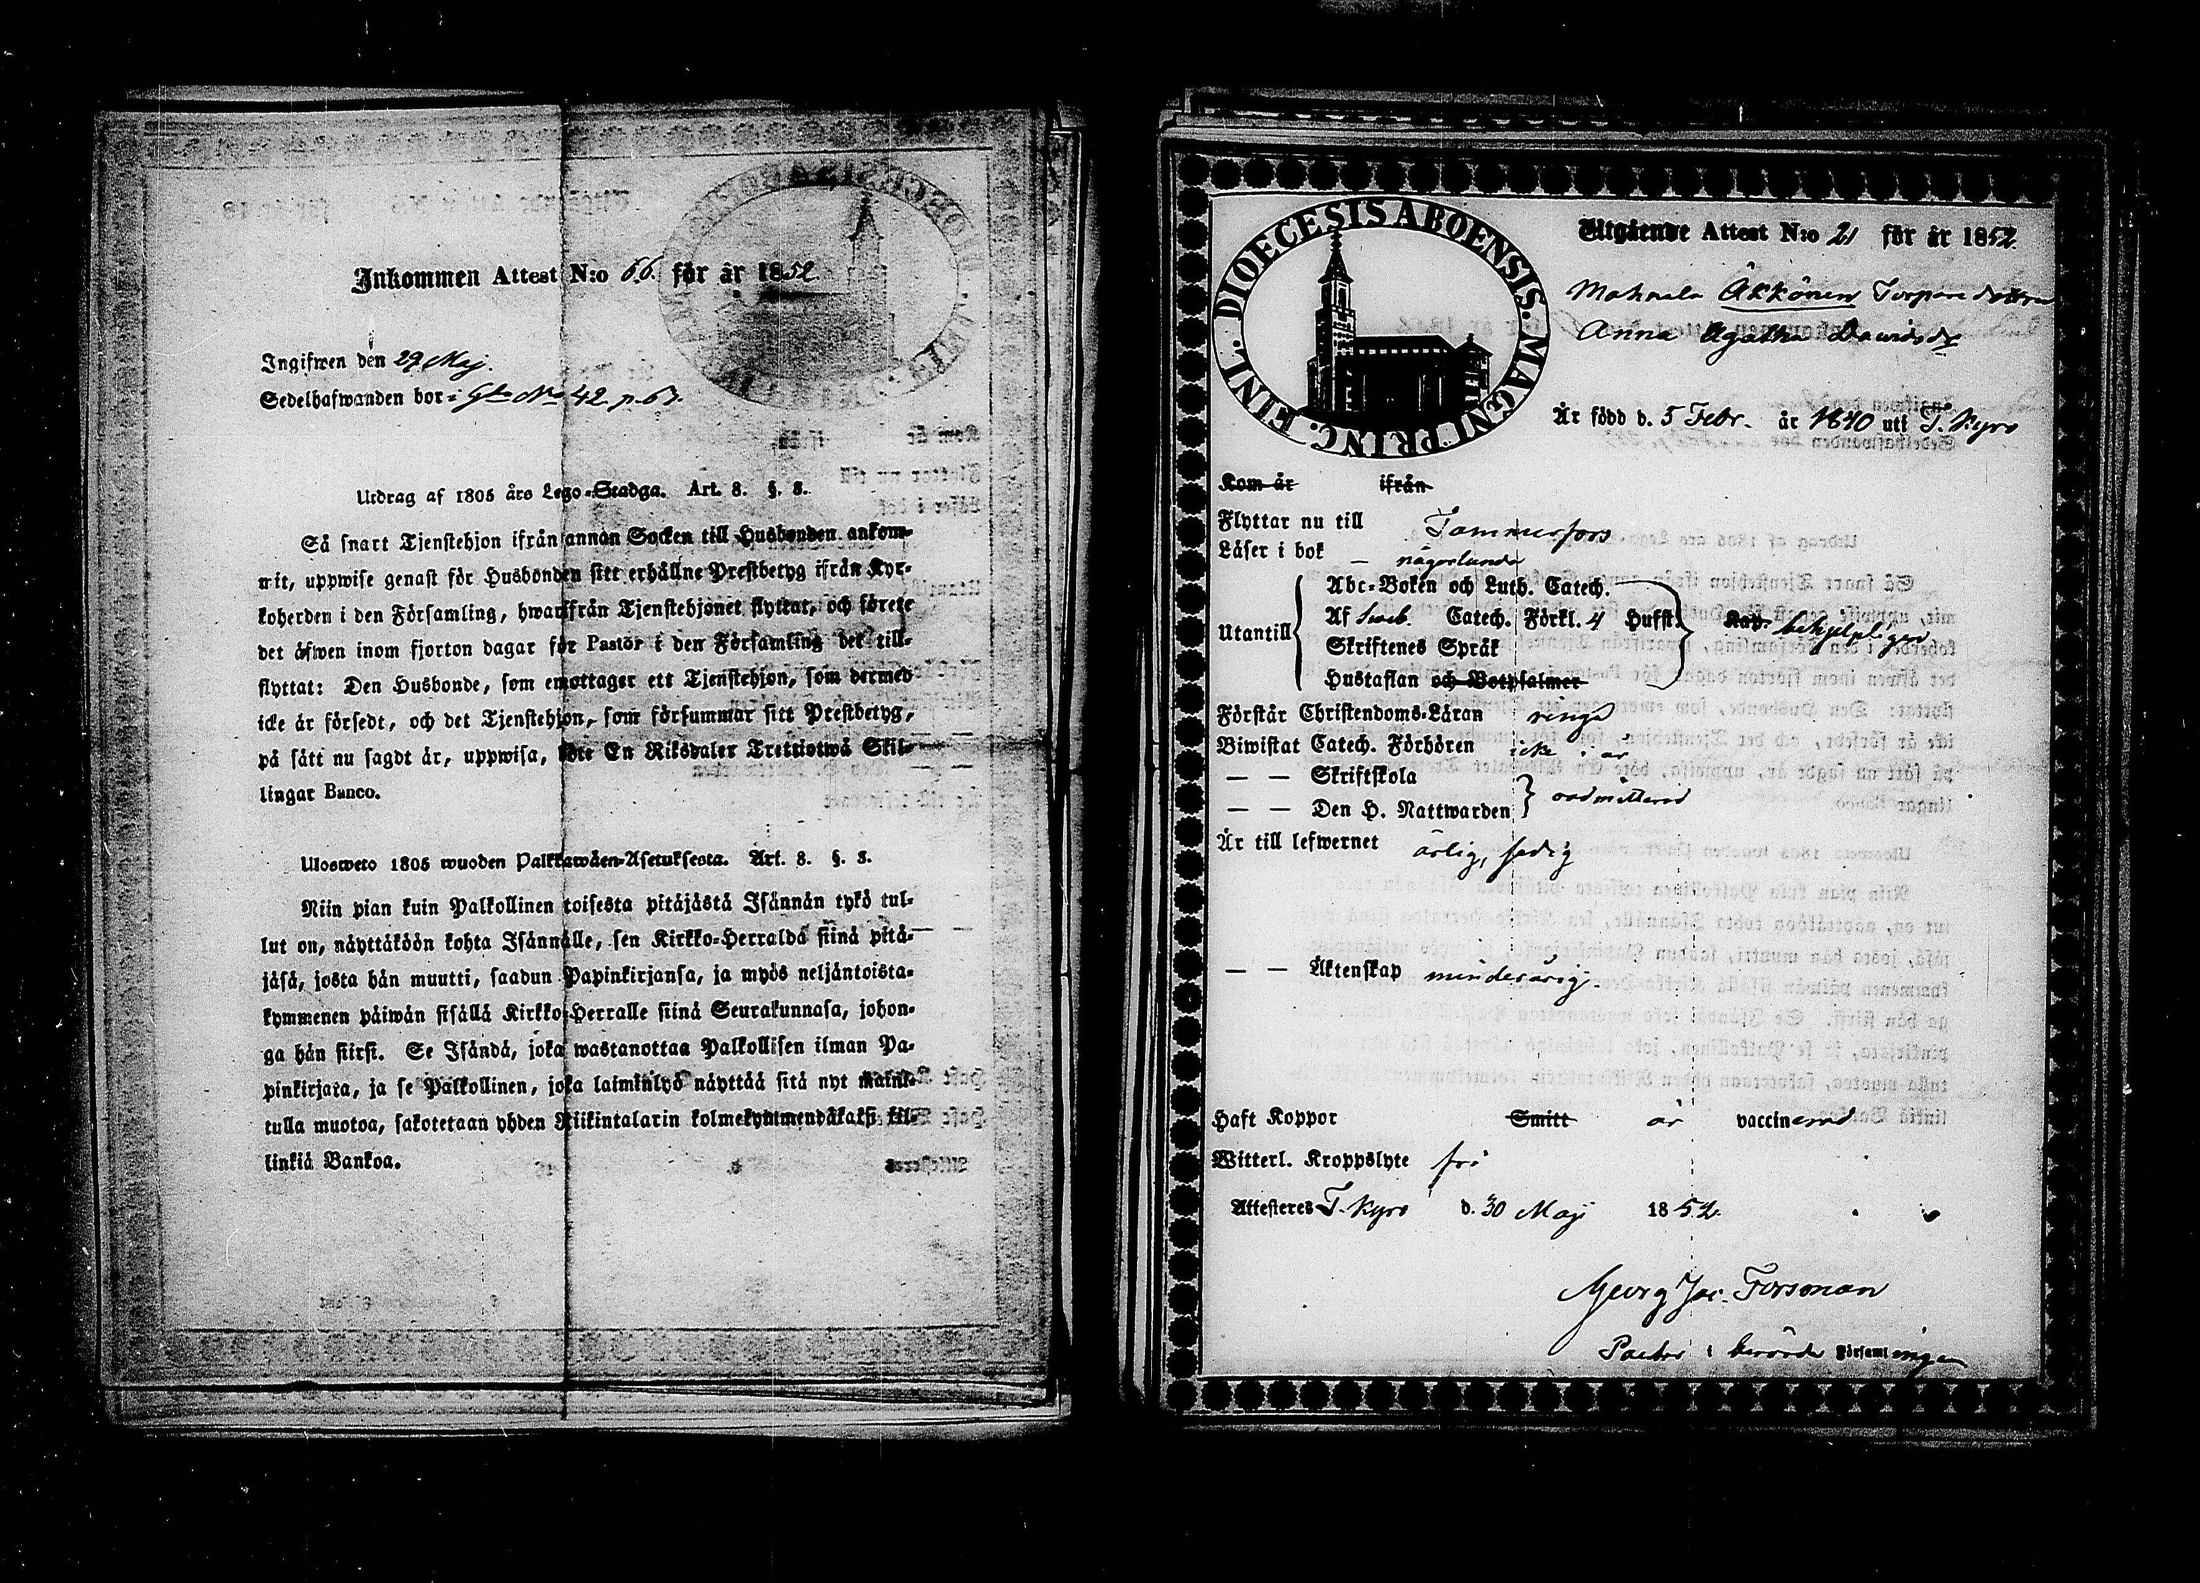 Inkommen Attest N:o 66. för år 1852
Ingifwen den 29 Maj.
Sedelhafwanden bor i Gto No 42 p. 67.
Utdrag af 1805 års Lego-Stadga. Art. 8. §. 8.
Så snart Tjenstehjon ifrån annan Socken till Husbonden ankom-
mit, uppwise genast för Husbonden sitt erhållne Prestbetyg ifrån Kyr-
koherden i den Församling, hwarifrån Tjenstehjonet flyttat, och förete
det äfwen inom fjorton dagar för Pastor i den Församling det till-
flyttat: Den Husbonde, som emottager ett Tjenstehjon, som dermed
icke är försedt, och det Tjenstehjon, som försummar sitt Prestbetyg,
på sätt nu sagdt är, uppwisa, böte En Riksdaler Trettiotwå Skil-
lingar Banco.
Ulosweto 1805 wuoden Palkkawäen-Asetuksesta. Art. 8. §. 8.
Niin pian kuin Palkollinen toisesta pitäjästä Isännän tykö tul-
lut on, näyttäköön kohta Isännälle, sen Kirkko-Herralda siinä pitä-
jäsä, josta hän muutti, saadun Papinkirjansa, ja myös neljäntoista-
kymmenen päiwän sisällä Kirkko-Herralle siinä Seurakunnasa, johon-
ga hän siirsi. Se Isändä, joka wastanottaa Palkollisen ilman Pa-
pinkirjata, ja se Palkollinen, joka laiminlyö näyttää sitä nyt mainit-
tulla muotoa, sakotetaan yhden Riikintalarin kolmekymmendäkaksi kil-
linkiä Bankoa.
DIOECESIS ABOENSIS. MAGNI PRINC. FINL.
Utgående Attest N:o 21 för år 1852.
Äkkönen
Anna Agatha Davidsdr
Är född d. 5 Febr. år 1840 uti T. Kyro
Kom år ifrån
Flyttar nu till Tammerfors
Läser i bok någorlunda
Utantill Abc-Boken och Luth. Catech.
Af Sveb. Catech. Förkl. 4 Hufst. Kap. behjelpligen
Skriftenes Språk
Hustaflan och Botpsalmer
Förstår Christendoms-Läran ringa
Biwistat Catech. Förhören icke i år
— — Skriftskola
— — Den H. Nattwarden oadmitterad
Är till lefwernet ärlig, sedig
— — Äktenskap minderårig.
Haft Koppor Smitt är vaccinerad
Witterl. Kroppslyte fri
Attesteres T. Kyro d. 30 Maji 1852.
Georg Jac. Forsman
Pastor i berörde Församlingen